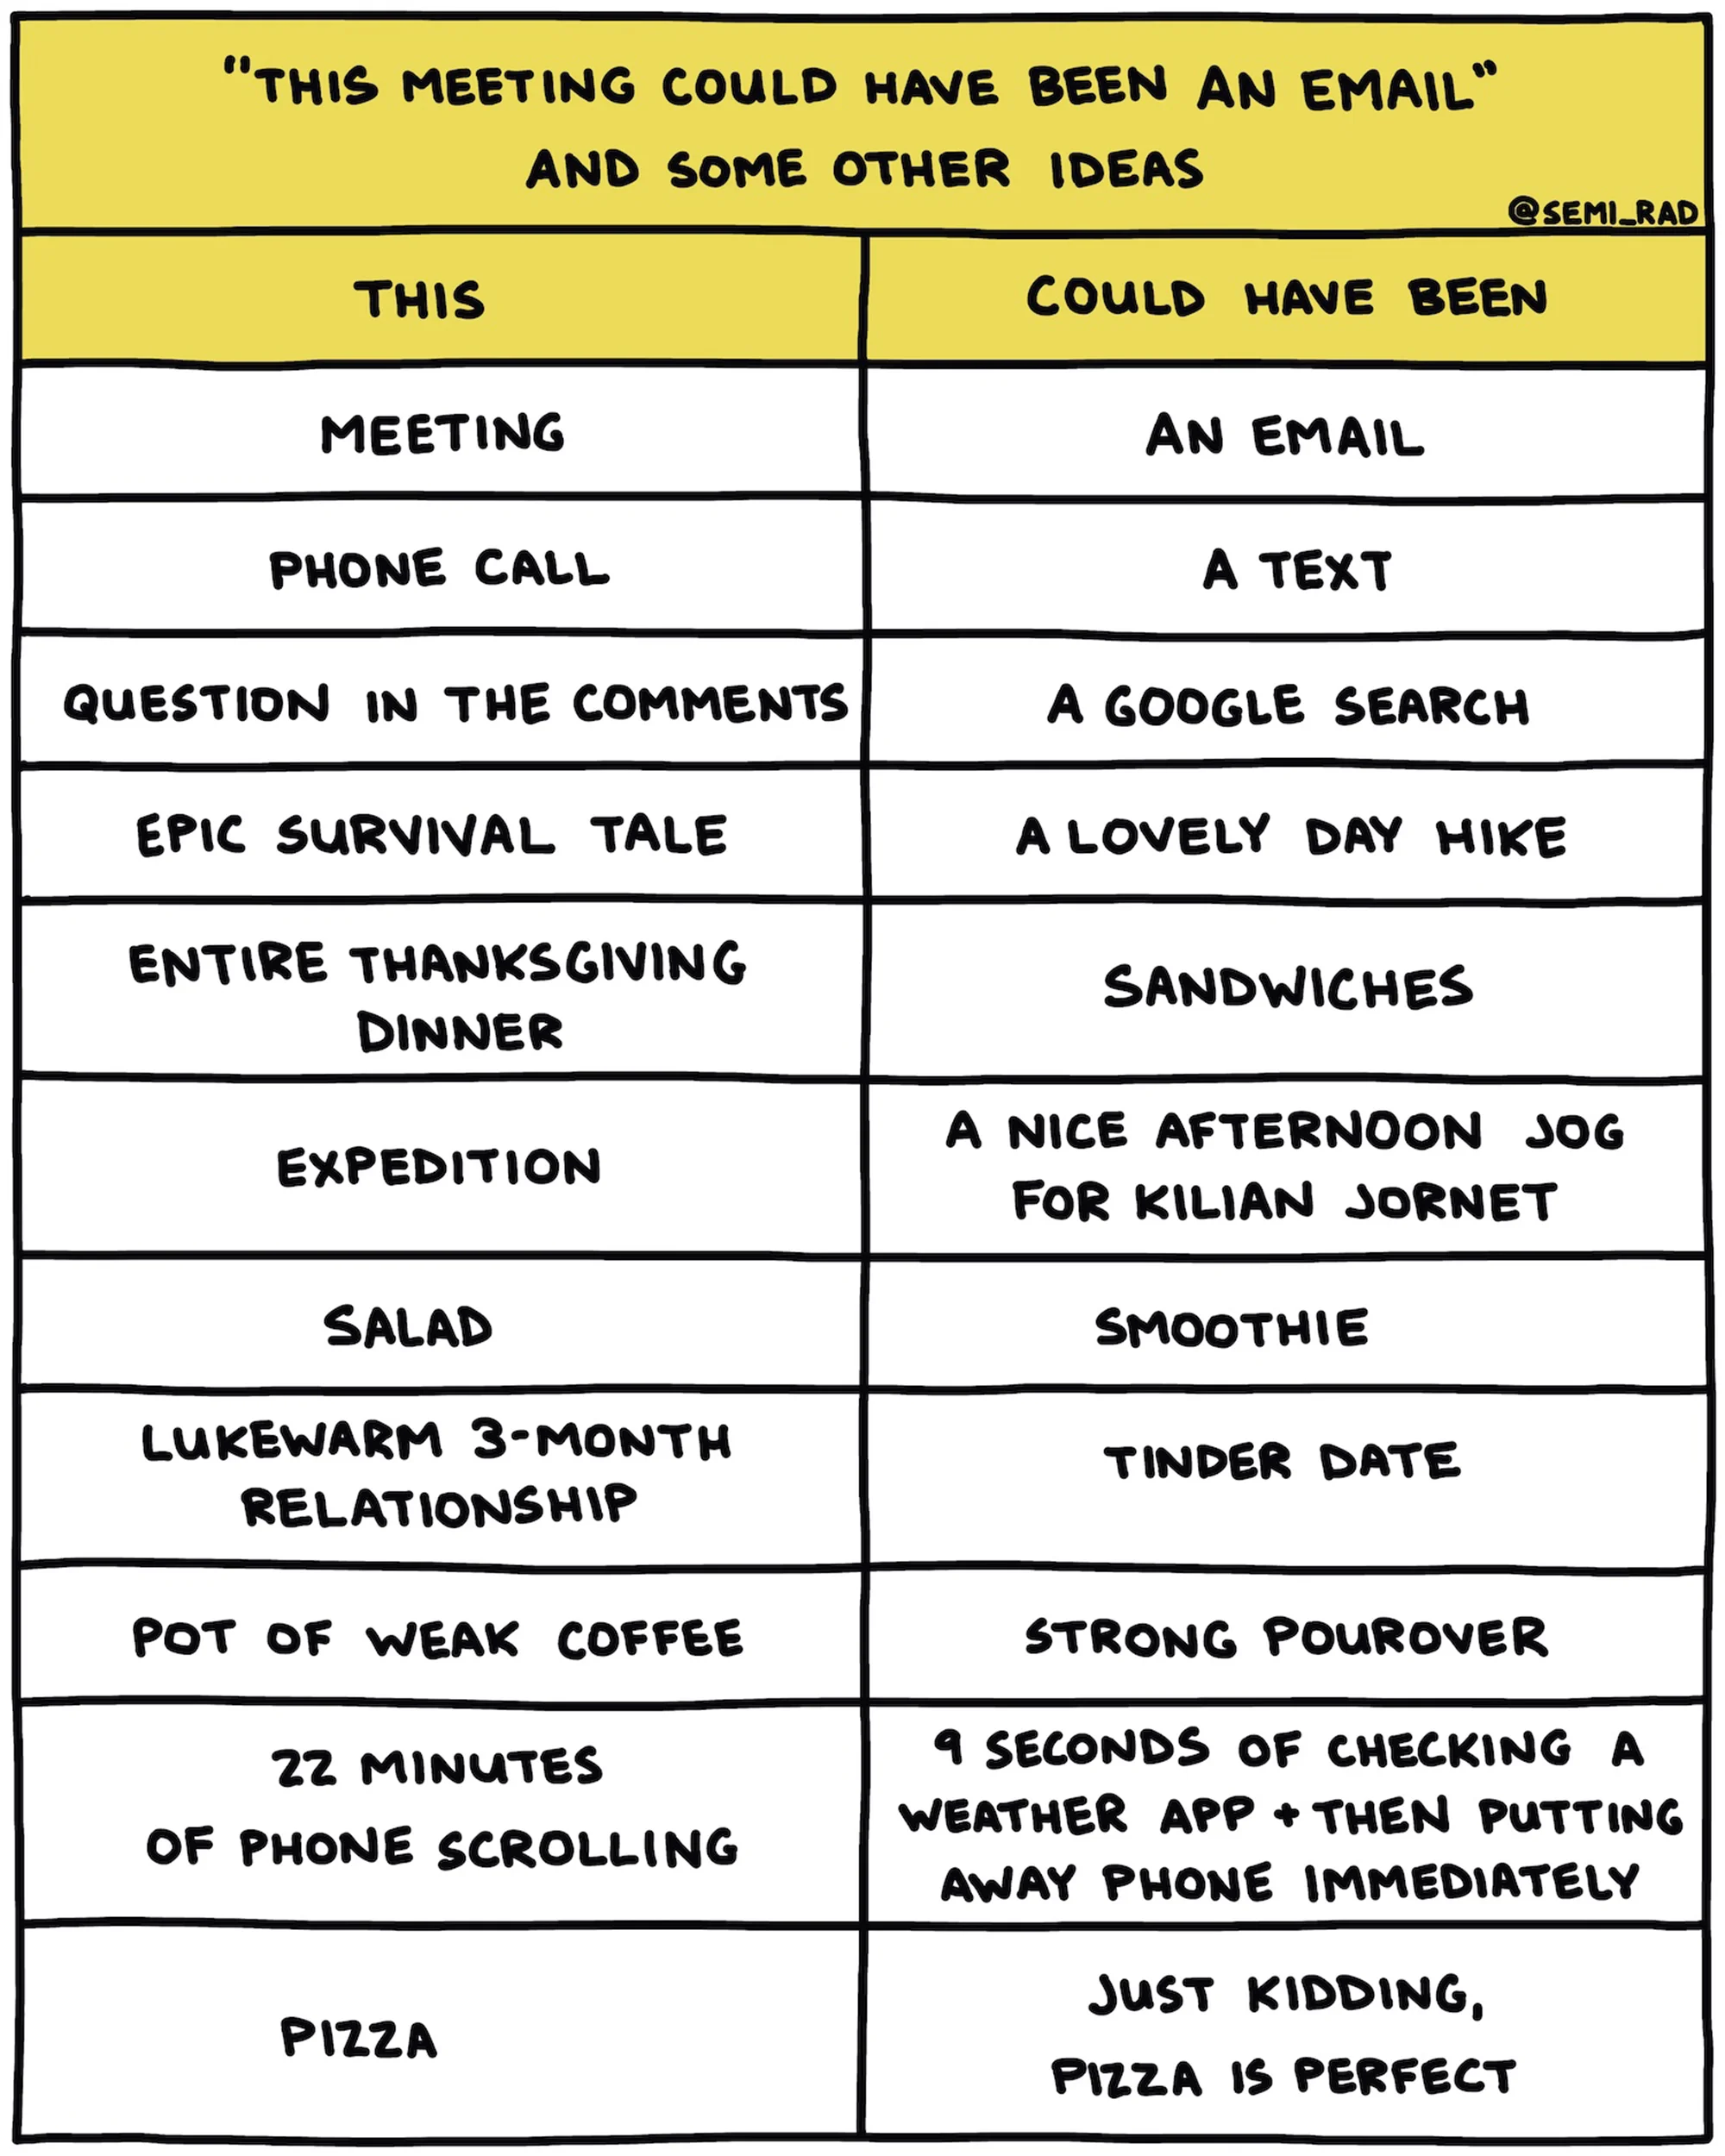 "THIS MEETING COULD HAVE BEEN AN EMAIL"
AND SOME OTHER IDEAS
@SEMI_RAD
THIS
COULD HAVE BEEN
MEETING
AN EMAIL
PHONE CALL
A TEXT
QUESTION IN THE COMMENTS
A GOOGLE SEARCH
EPIC SURVIVAL TALE
A LOVELY DAY HIKE
ENTIRE THANKSGIVING
DINNER
SANDWICHES
EXPEDITION
A NICE AFTERNOON JOG
FOR KILIAN JORNET
SALAD
SMOOTHIE
LUKEWARM 3-MONTH
RELATIONSHIP
TINDER DATE
POT OF WEAK COFFEE
STRONG POUROVER
22 MINUTES
OF PHONE SCROLLING
9 SECONDS OF CHECKING A
WEATHER APP + THEN PUTTING
AWAY PHONE IMMEDIATELY
PIZZA
JUST KIDDING,
PIZZA IS PERFECT